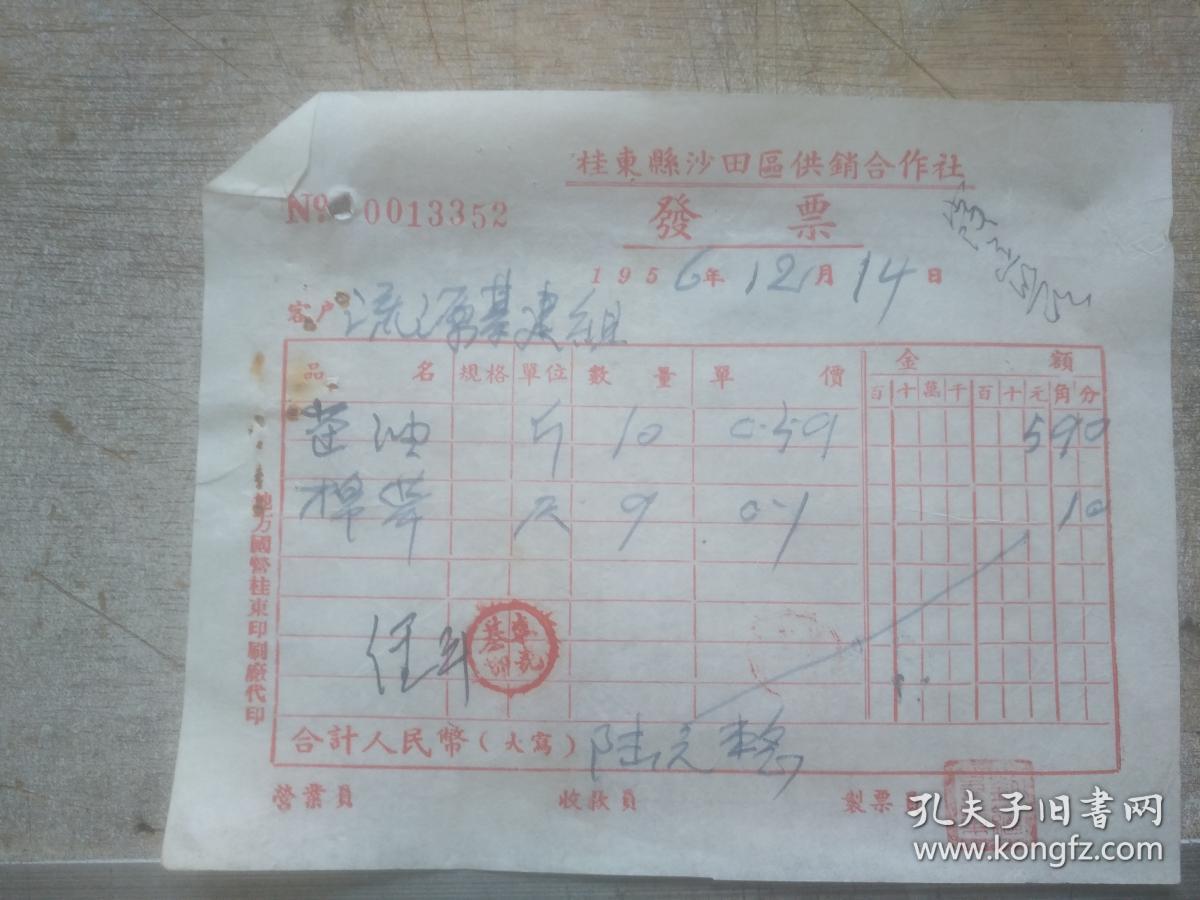 桂東縣沙田區供銷合作社
№ 0013352
發 票
1956年12月14日
客户 流源基建組
品 名 規格 單位 數 量 單 價 金 額
百 十 萬 千 百 十 元 角 分
油 斤 10 0.59 5 9 0
棉 9 0.1 1 0
合計人民幣(大寫) 陆元整
營業員 收款員 製票員
地方國營桂東印刷廠代印
孔夫子旧书网
www.kongfz.com